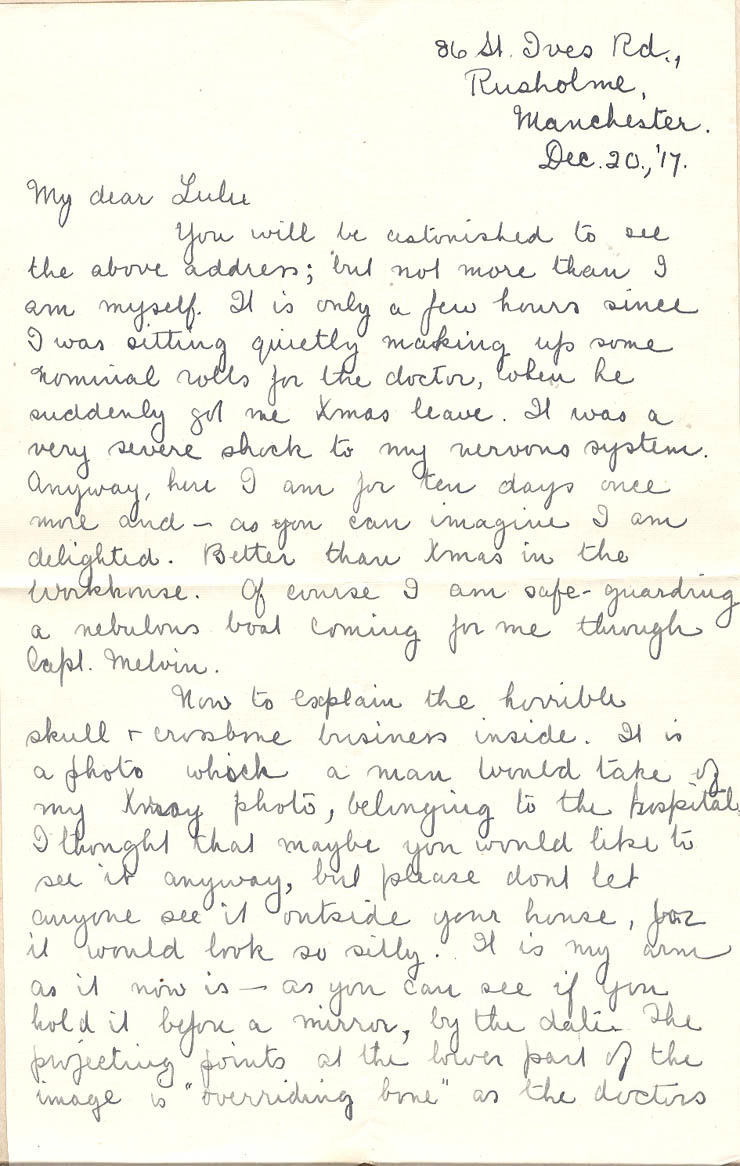 86 St. Ives Rd.,
Rusholme,
Manchester.
Dec. 20., '17.
My dear Lulu
You will be astonished to see
the above address; but not more than I
am myself. It is only a few hours since
I was sitting quietly making up some
nominal rolls for the doctor, when he
suddenly got me Xmas leave. It was a
very severe shock to my nervous system.
Anyway, here I am for ten days once
more and – as you can imagine I am
delighted. Better than Xmas in the
Workhouse. Of course I am safe-guarding
a nebulous boat coming for me through
Capt. Melvin.
Now to explain the horrible
skull + crossbone business inside. It is
a photo which a man would take of
my Xray photo, belonging to the hospital.
I thought that maybe you would like to
see it anyway, but please dont let
anyone see it outside your house, for
it would look so silly. It is my arm
as it now is – as you can see if you
hold it before a mirror, by the date. The
projecting points at the lower part of the
image is "overriding bone" as the doctors